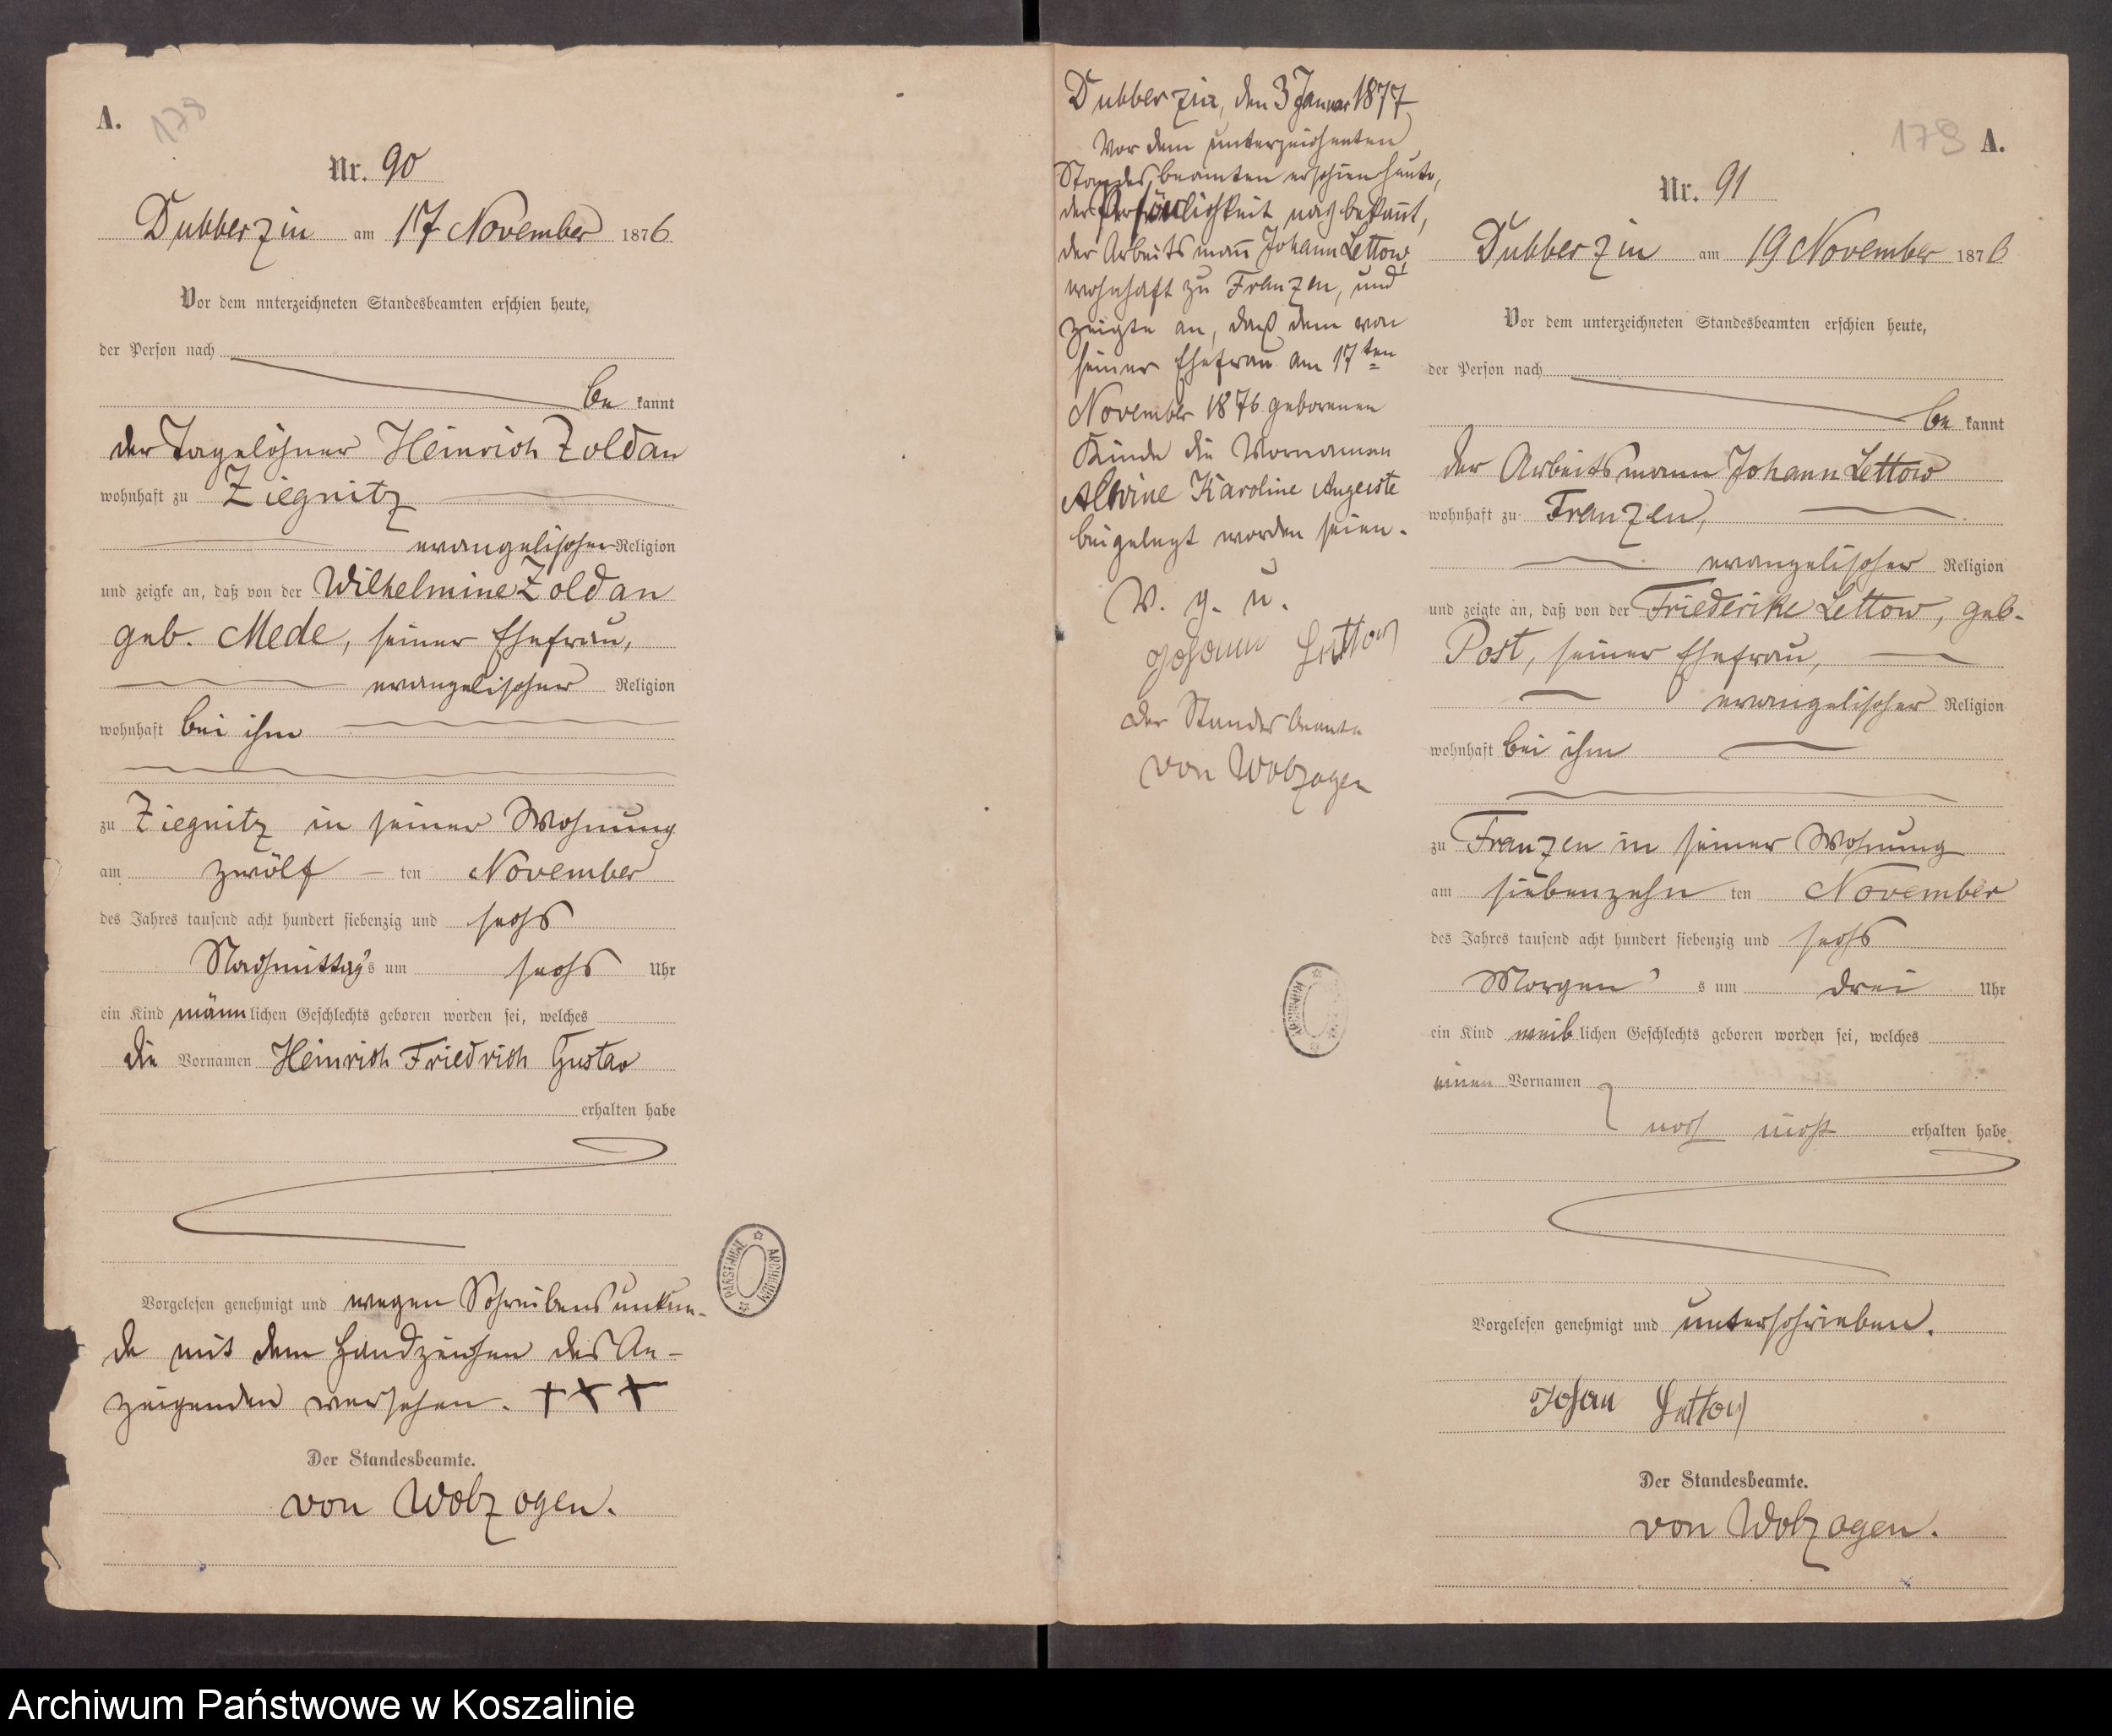 A.
178
Nr. 90
Dubberzin am 17 November 1876
Vor dem unterzeichneten Standesbeamten erschien heute,
der Person nach
be kannt
der Tagelöhner Heinrich Zoldan
wohnhaft zu Ziegnitz
evangelischer Religion
und zeigte an, daß von der Wilhelmine Zoldan
geb. Mede, seiner Ehefrau,
evangelischer Religion
wohnhaft bei ihm
zu Ziegnitz in seiner Wohnung
am zwölf ten November
des Jahres tausend acht hundert siebenzig und sechs
Nachmittag's um sechs Uhr
ein Kind männlichen Geschlechts geboren worden sei, welches
die Vornamen Heinrich Friedrich Gustav
erhalten habe
Vorgelesen genehmigt und wegen Schreibensunkun-
de mit dem Handzeichen des An-
zeigenden versehen. +++
Der Standesbeamte.
von Wobzogen.
PAŃSTWOWE ARCHIWUM
Dubberzin, den 3 Januar 1877
Vor dem unterzeichneten
Standesbeamten erschien heute,
der Persönlichkeit nach bekannt,
der Arbeitsmann Johann Lettow,
wohnhaft zu Franzen, und
zeigte an, daß dem von
seiner Ehefrau am 17ten
November 1876 geborenen
Kinde die Vornamen
Alwine Karoline Auguste
beigelegt worden seien.
V. g. u.
Johann Lettow
Der Standesbeamte
von Wobzogen
179
A.
Nr. 91
Dubberzin am 19 November 1876
Vor dem unterzeichneten Standesbeamten erschien heute,
der Person nach
be kannt
der Arbeitsmann Johann Lettow
wohnhaft zu Franzen,
evangelischer Religion
und zeigte an, daß von der Friederike Lettow, geb.
Post, seiner Ehefrau,
evangelischer Religion
wohnhaft bei ihm
zu Franzen in seiner Wohnung
am siebenzehn ten November
des Jahres tausend acht hundert siebenzig und sechs
Morgen's um drei Uhr
ein Kind weiblichen Geschlechts geboren worden sei, welches
einen Vornamen
noch nicht erhalten habe.
Vorgelesen genehmigt und unterschrieben.
Johan Lettow
Der Standesbeamte.
von Wobzogen.
Archiwum Państwowe w Koszalinie